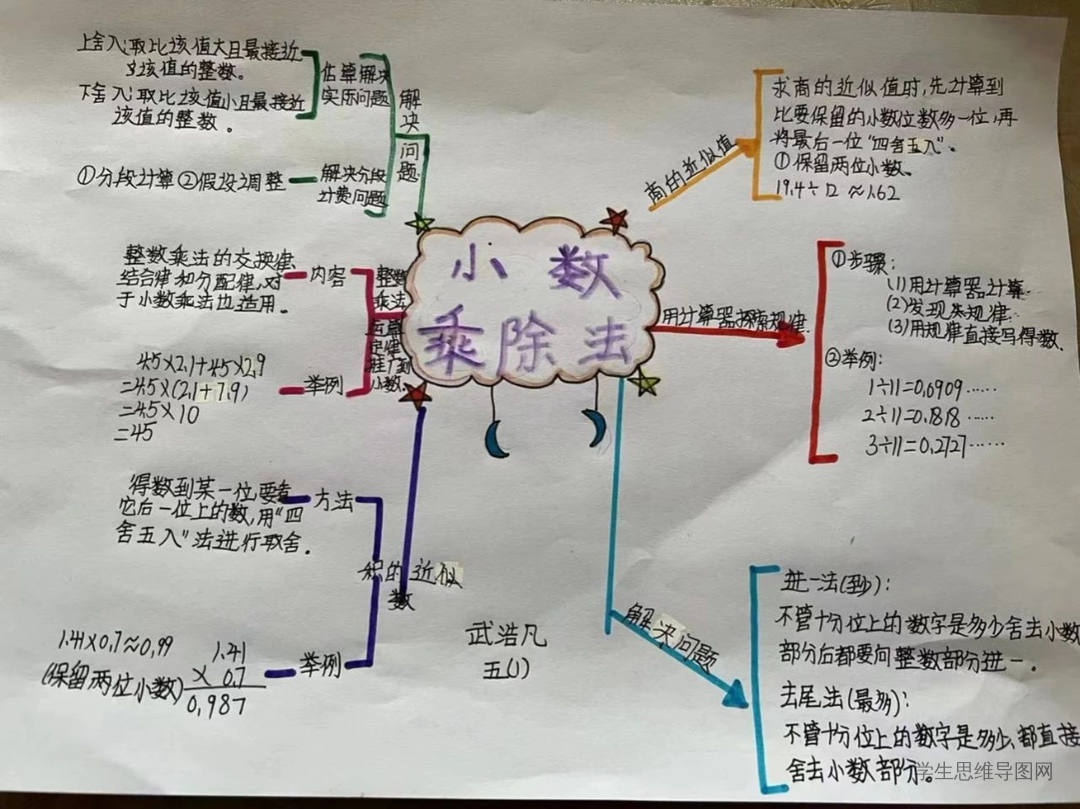 小数
乘除法
上舍入:取比该值大且最接近
该值的整数。
下舍入:取比该值小且最接近
该值的整数。
估算解决
实际问题
解决问题
①分段计算②假设调整
解决分段
计费问题
整数乘法的交换律,
结合律和分配律,对
于小数乘法也适用。
内容
整数
乘法
运算
定律
推广到
小数.
4.5×2.1+4.5×7.9
=4.5×(2.1+7.9)
=4.5×10
=45
举例
得数到某一位,要看
它后一位上的数,用"四
舍五入"法进行取舍.
方法
积的近似
数
1.41×0.7≈0.99
(保留两位小数)
1.41
× 0.7
0.987
举例
商的近似值
求商的近似值时,先计算到
比要保留的小数位数多一位,再
将最后一位"四舍五入".
①保留两位小数。
19.4÷12≈1.62
用计算器探索规律.
①步骤:
(1)用计算器计算.
(2)发现规律.
(3)用规律直接写得数.
②举例:
1÷11=0.0909……
2÷11=0.1818……
3÷11=0.2727……
解决问题
进一法(到少):
不管十分位上的数字是多少舍去小数
部分后都要向整数部分进一.
去尾法(最多):
不管十分位上的数字是多少,都直接
舍去小数部分。
武浩凡
五(1)
学生思维导图网